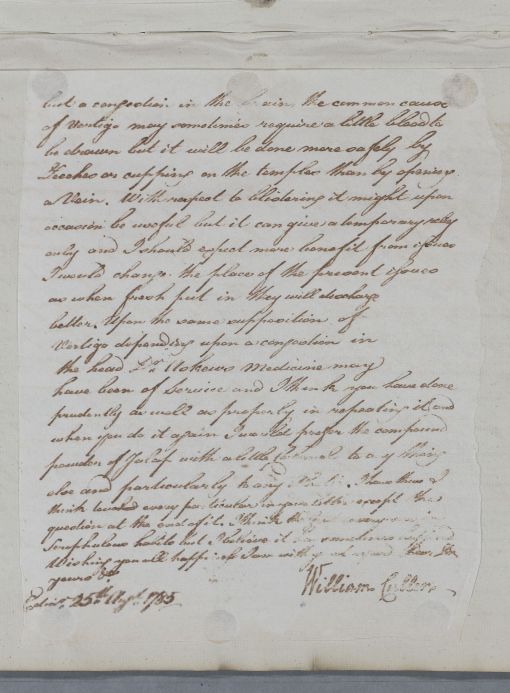 but a congestion in the Brain, the common cause
of Vertigo may sometimes require a little blood to
be drawn but it will be done more safely by
Leeches or cupping on the temples than by opening
a Vein. With respect to blistering it might upon
occasion be useful but it can give a temporary
only and I should expect more benefit from issues
I would change the place of the present issues
as when fresh put in they will discharge
better. Upon the same supposition of
Vertigo depending upon a congestion in
the head Dr. Medicine may
have been of Service and I think you have done
prudently as well as properly in repeating it and
when you do it again I would prefer the compound
powder of Jalap with a little to any thing
else and particularly to any I have thus I
think touched every particular in your letter except the
question at the end of it. I think the
Scrophulous habits but I believe it
Wishing you all happiness I am with Dear Sir
yours &c
William Cullen
Edinr. 25th Augt. 1785